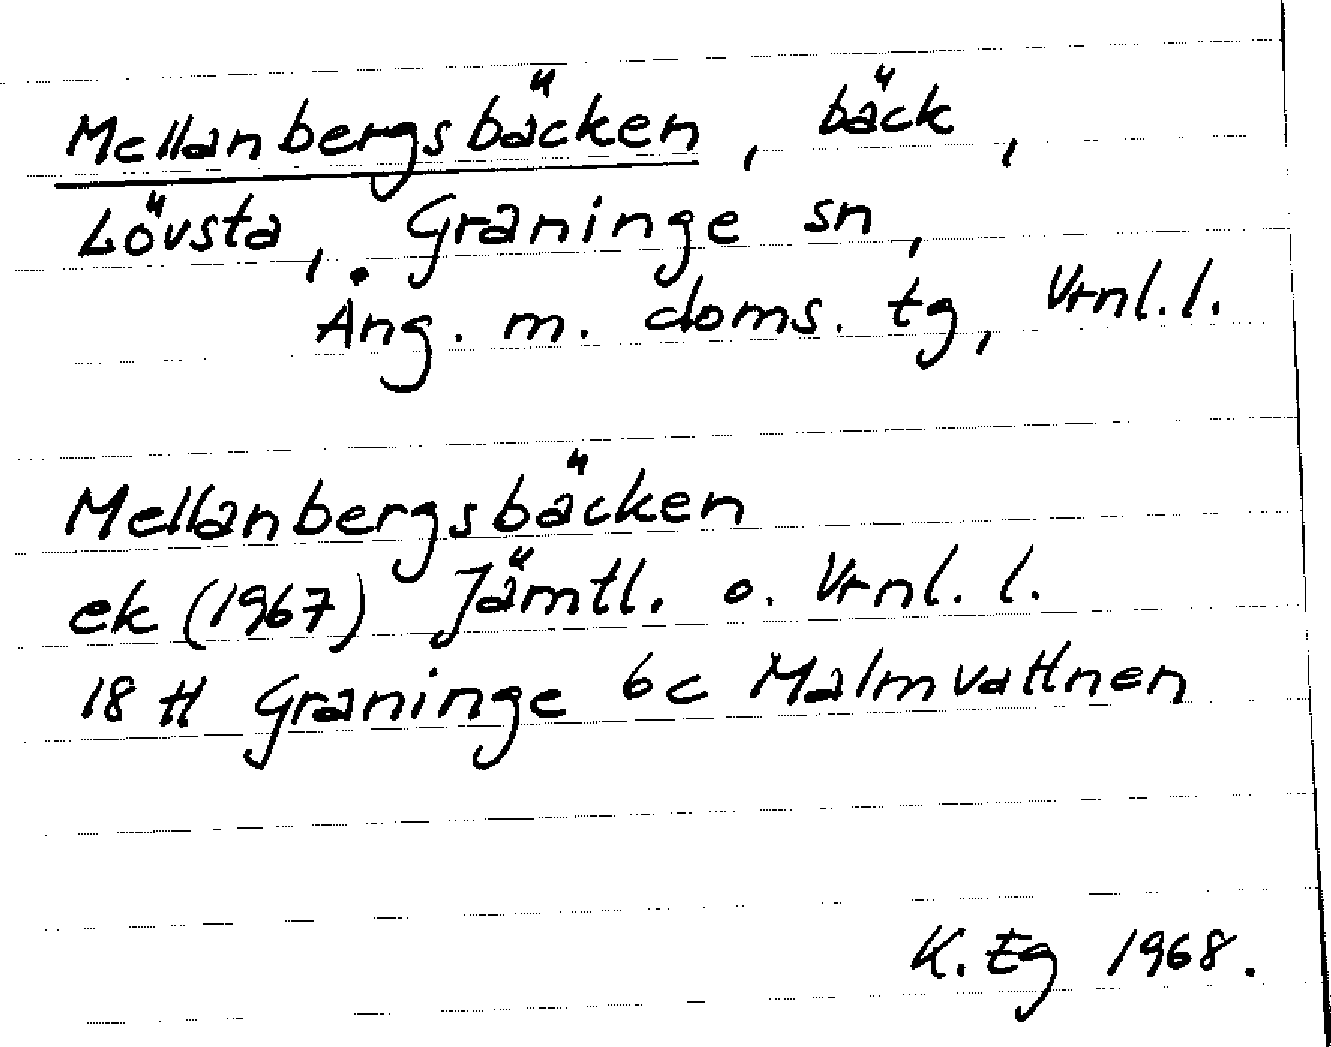 Mellanbergsbäcken, bäck,
Lövsta, Graninge sn,
Ång. m. doms. tg, Vrnl. l.
Mellanbergsbäcken
ek (1967) Jämtl. o. Vrnl. l.
18 H Graninge 6c Malmvattnen
K. Eg 1968.